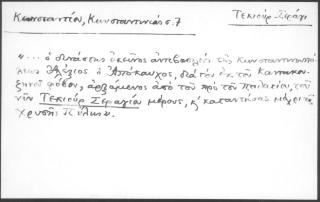 Κωνσταντίου, Κωνσταντινιάς σ. 7
Τεκιούρ-Σεράγι
"... ὁ δυνάστης ἐκεῖνος ἀντιβασιλεὺς τῆς Κωνσταντινουπό
λεως Ἀλέξιος ὁ Ἀπόκαυκος, διὰ τὸν ἐκ τοῦ Καντακου-
ζηνοῦ φόβον, ἀρξάμενος ἀπὸ τοῦ πρὸς τὸ Παλατίον, τοῦ
νῦν Τεκιούρ Σεραγίου μέρους, κ' καταντήσας μέχρι τῆς
Χρυσῆς Πύλης".